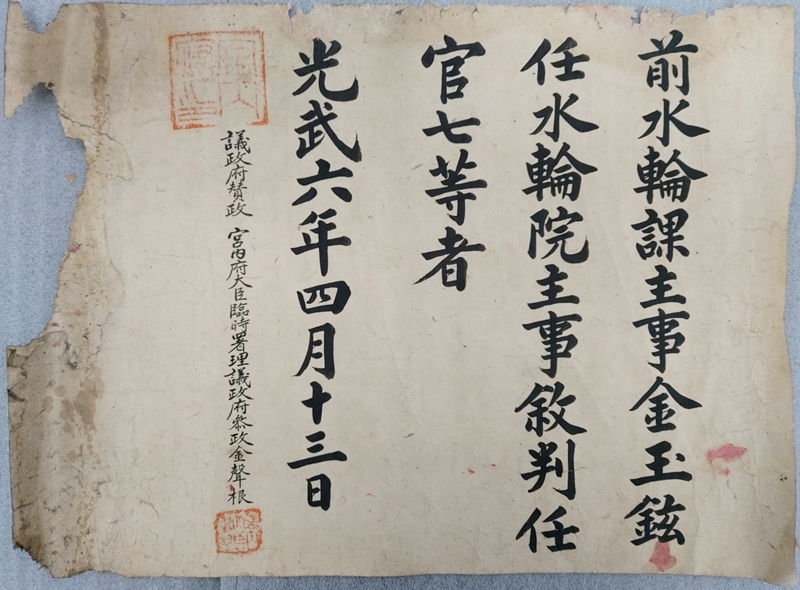 前水輪課主事金玉鉉
任水輪院主事敘判任
官七等者
光武六年四月十三日
議政府贊政 宮內府大臣臨時署理議政府參政金聲根